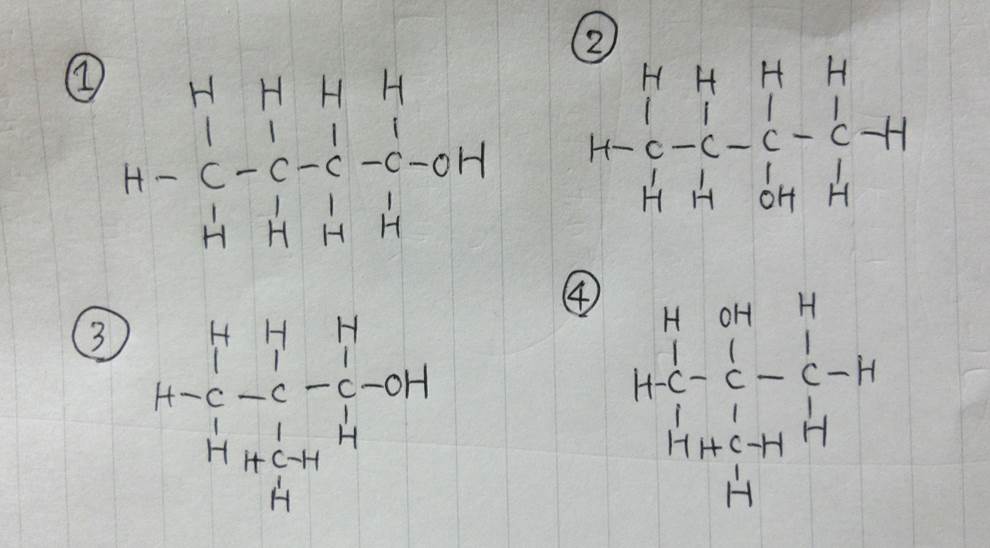 ①
H H H H
H-C-C-C-C-OH
H H H H
②
H H H H
H-C-C-C-C-H
H H OH H
③
H H H
H-C-C-C-OH
H H
H-C-H
H
④
H OH H
H-C-C-C-H
H H
H-C-H
H